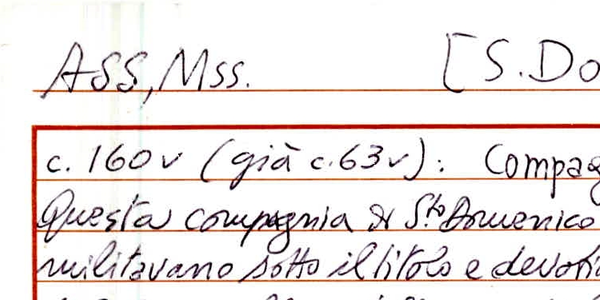 ASS, Mss. [S. Do
c. 160v (già c. 63v): Compag
Questa compagnia di S.to Domenico
militavano sotto il titolo e devoti